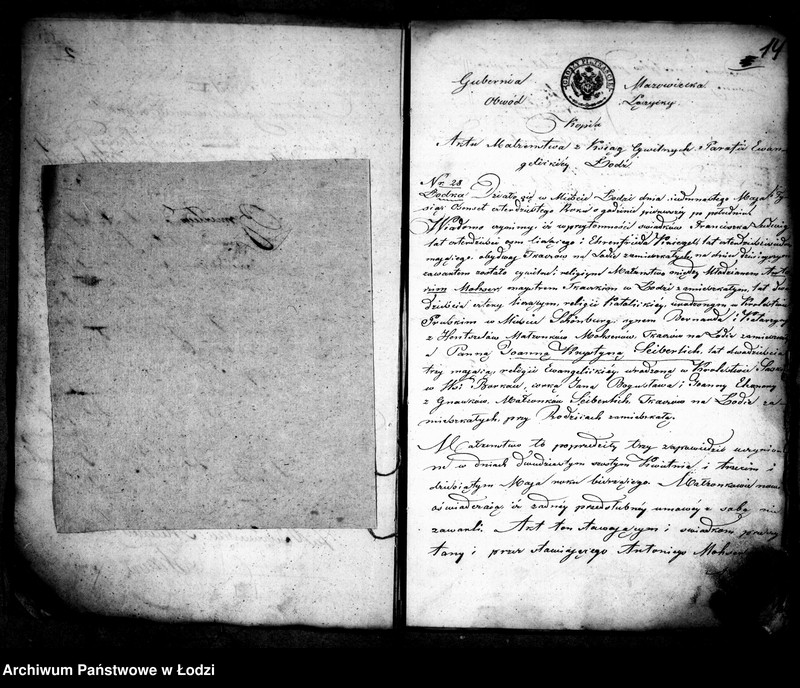 14
Gubernia Mazowiecka
Obwód Łęczycki
Kopia
Aktu Małżeństwa z Ksiąg Cywilnych Parafii Ewan-
gelickiéy Łodzi
Nr. 28
Łodka Działo się w Mieście Łodzi dnia iedenastego Maja ty-
siąc Ośmset czterdziestego Roku o godzinie pierwszéy po południu
Wiadomo czynimy, iż w przytomności świadków Franciszka
lat czterdzieści ośm liczącego i Ehrenfrieda lat
mającego, obydwóch Tkaczów na Łodce zamieszkałych, na dniu dzisieyszym
zawartem zostało cywilne i religijne Małżeństwo między Młodzianem Anto-
nim Mohser, maystrem Tkackim w Łodzi zamieszkałym, lat dwa-
dzieścia cztery liczącym, religii Katolickiéy, urodzonym w Królestwie
Pruskim w Mieście Schönburg, synem Bernarda i Katarzyny
z Małżonków Mohserów, Tkaczów na Łodce zamieszk
a Panną Joanną Krystyną Seiberlich, lat dwadzieścia
trzy mającą, religii Ewangelickiéy, urodzoną w Królestwie Sask
w Wsi córką Jana Bogusława i Joanny
z Małżonków Seiberlich, Tkaczów na Łodce za-
mieszkałych, przy Rodzicach zamieszkałą.
Małżeństwo to poprzedziły trzy zapowiedzie uczynio-
ne w dniach dwudziestym szóstym Kwietnia i trzecim i
dziesiątym Maja roku bieżącego. Małżonkowie nowi
oświadczaią iż żadnéy przedślubnéy umowy z sobą nie
zawarli. Akt ten stawaiącym i świadkom przeczy-
tany i przez stawaiącego Antoniego Mohser
Archiwum Państwowe w Łodzi